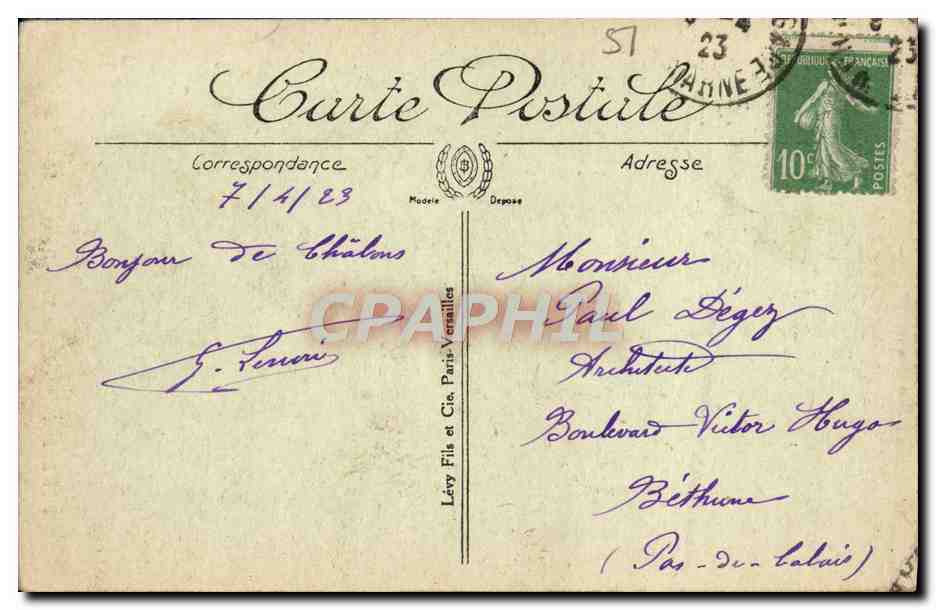 51
4
23
MARNE
23
RÉPUBLIQUE FRANÇAISE
10c
POSTES
Carte Postale
Correspondance
Adresse
Modèle Déposé
7/4/23
Bonjour de Châlons
Monsieur
Paul Dégez
Architecte
Boulevard Victor Hugo
Béthune
(Pas-de-Calais)
Lévy Fils et Cie, Paris-Versailles
CPAPHIL